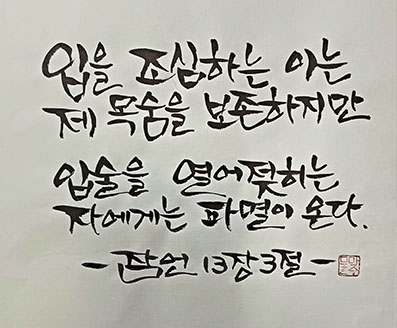 입을 조심하는 이는
제 목숨을 보존하지만
입술을 열어젖히는
자에게는 파멸이 온다.
-잠언 13장 3절-